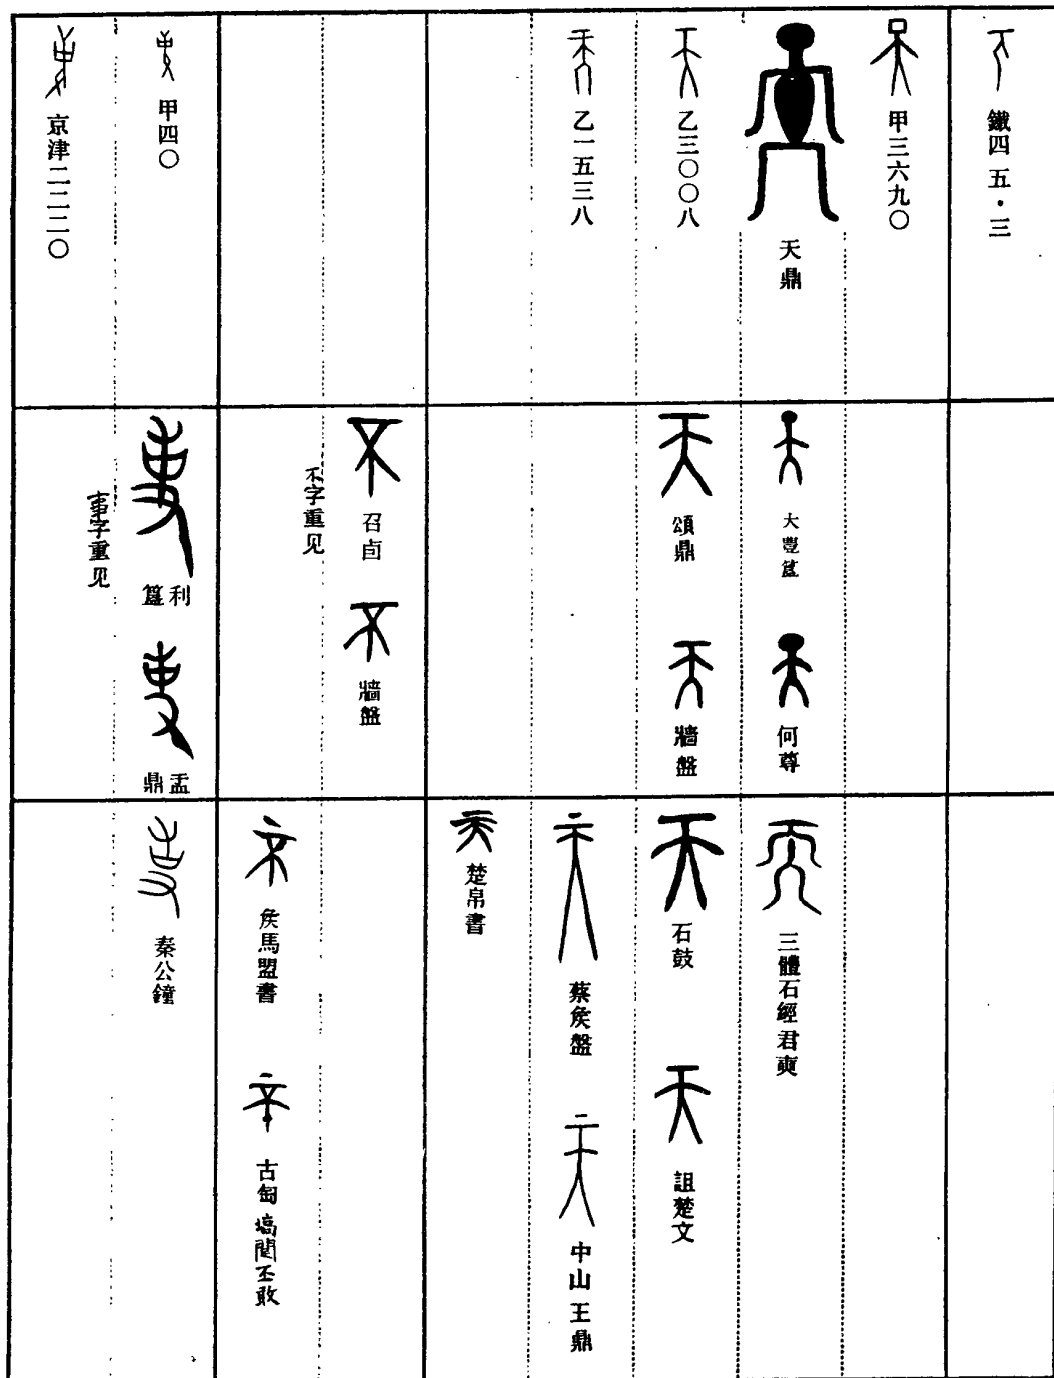 鐵四五·三
甲三六九〇
天鼎
乙三〇〇八
乙一五三八
甲四〇
京津二二二〇
大豐簋
何尊
頌鼎
牆盤
召卣
牆盤
不字重见
利簋
盂鼎
吏字重见
三體石經君奭
石鼓
詛楚文
蔡侯盤
中山王鼎
楚帛書
侯馬盟書
古匋
丕敢
秦公鐘